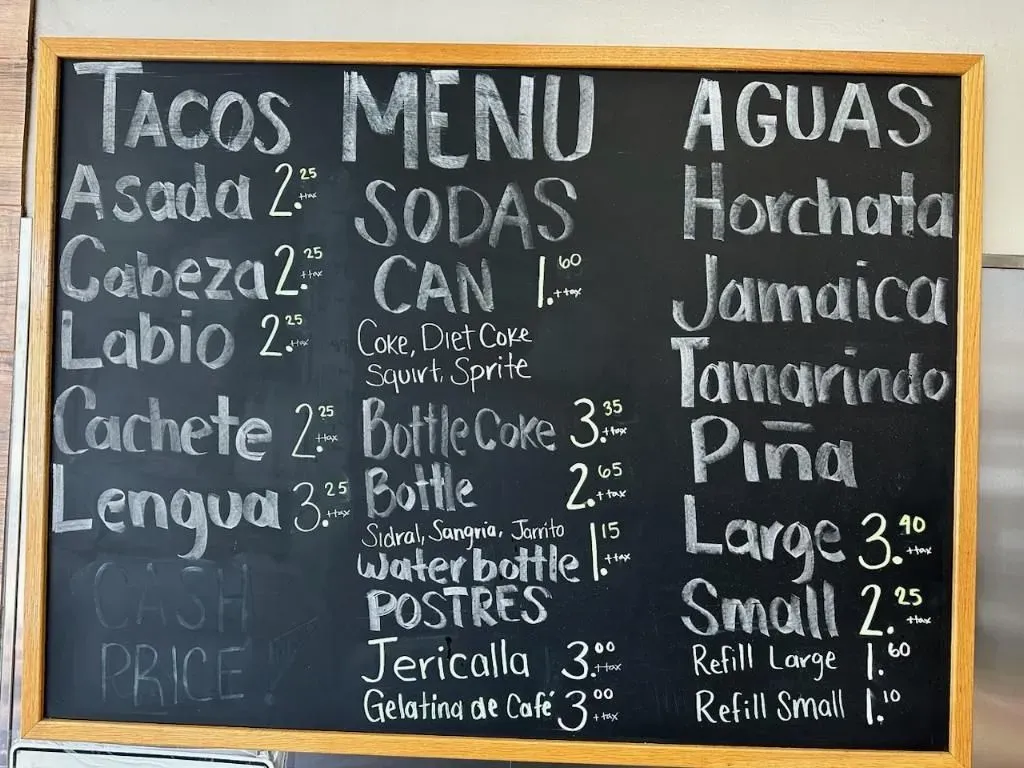 TACOS
Asada 2.25 +tax
Cabeza 2.25 +tax
Labio 2.25 +tax
Cachete 2.25 +tax
Lengua 3.25 +tax
CASH
PRICE
MENU
SODAS
CAN 1.60 +tax
Coke, Diet Coke
Squirt, Sprite
Bottle Coke 3.35 +tax
Bottle 2.65 +tax
Sidral, Sangria, Jarrito
Water bottle 1.15 +tax
POSTRES
Jericalla 3.00 +tax
Gelatina de Café 3.00 +tax
AGUAS
Horchata
Jamaica
Tamarindo
Piña
Large 3.90 +tax
Small 2.25 +tax
Refill Large 1.60
Refill Small 1.10